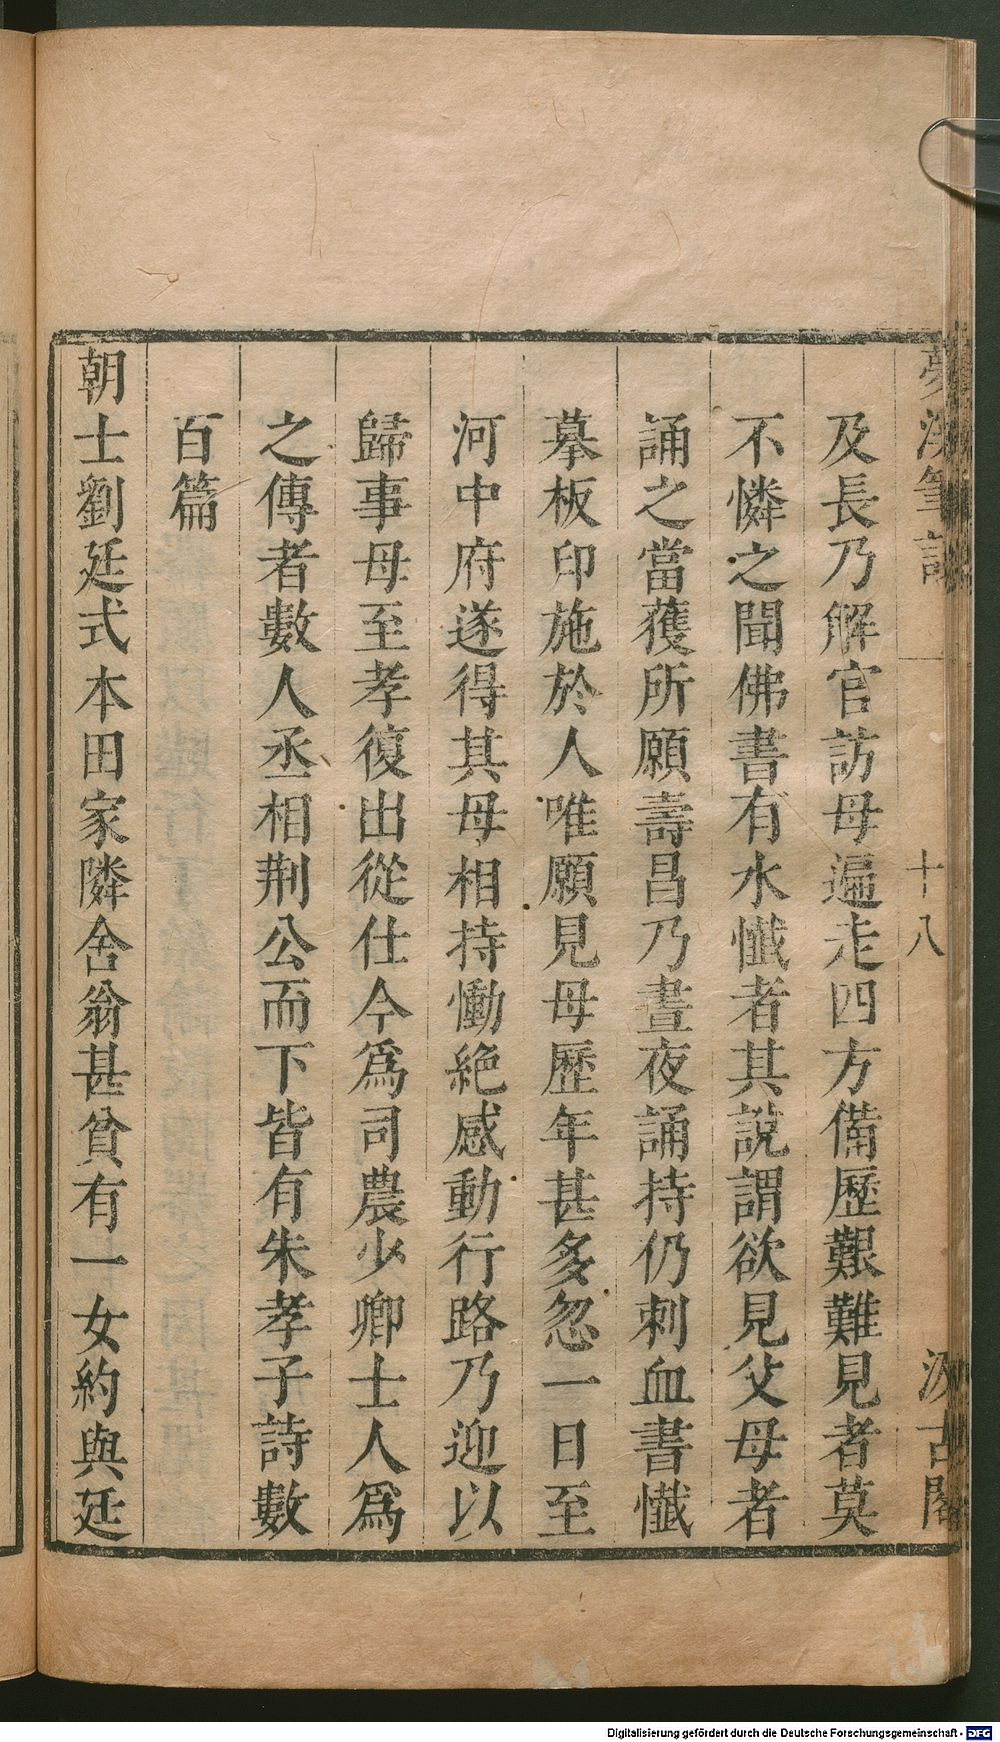 夢溪筆談 十八 汲古閣
及長乃解官訪母遍走四方備歷艱難見者莫
不憐之聞佛書有水懺者其說謂欲見父母者
誦之當獲所願壽昌乃晝夜誦持仍刺血書懺
摹板印施於人唯願見母歷年甚多忽一日至
河中府遂得其母相持慟絶感動行路乃迎以
歸事母至孝復出從仕今爲司農少卿士人爲
之傳者數人丞相荆公而下皆有朱孝子詩數
百篇
朝士劉廷式本田家隣舍翁甚貧有一女約與廷
Digitalisierung gefördert durch die Deutsche Forschungsgemeinschaft - DFG